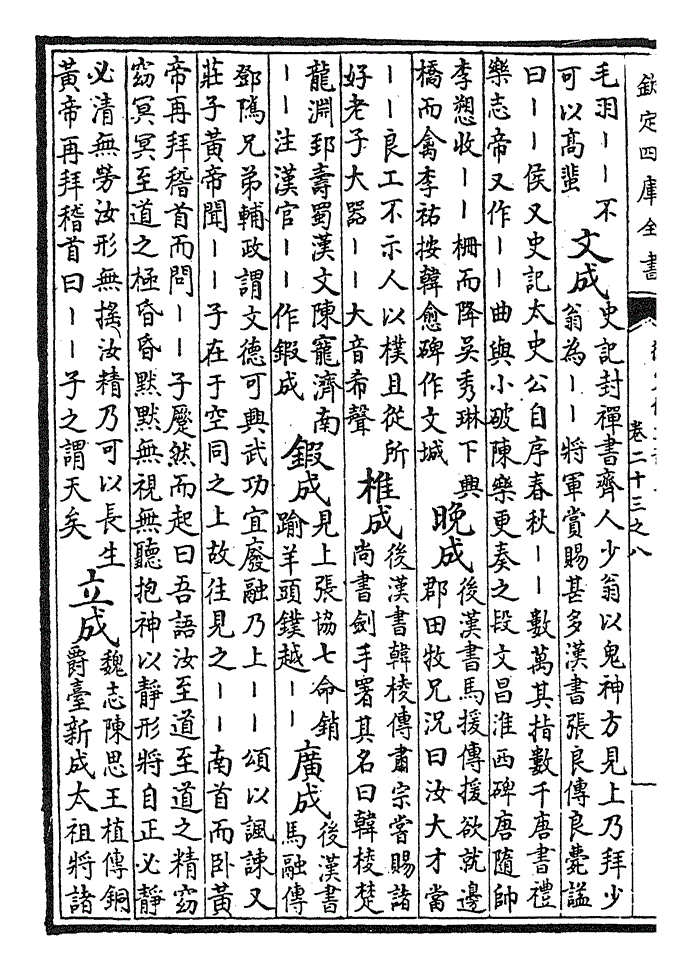 欽定四庫全書
卷二十三之八
毛羽丨丨不
可以高蜚
文成
史記封禪書齊人少翁以鬼神方見上乃拜少
翁為丨丨將軍賞賜甚多漢書張良傳良薨謚
曰丨丨侯又史記太史公自序春秋丨丨數萬其指數千唐書禮
樂志帝又作丨丨曲與小破陳樂更奏之段文昌淮西碑唐隨帥
李愬收丨丨柵而降吳秀琳下興
橋而禽李祐按韓愈碑作文城
晚成
後漢書馬援傳援欲就邊
郡田牧兄況曰汝大才當
丨丨良工不示人以樸且從所
好老子大器丨丨大音希聲
椎成
後漢書韓棱傳肅宗嘗賜諸
尚書劍手署其名曰韓棱楚
龍淵郅壽蜀漢文陳寵濟南
丨丨注漢官丨丨作鍛成
鍛成
見上張協七命銷
踰羊頭鏷越丨丨
廣成
後漢書
馬融傳
鄧隲兄弟輔政謂文德可興武功宜廢融乃上丨丨頌以諷諫又
莊子黃帝聞丨丨子在于空同之上故往見之丨丨南首而卧黃
帝再拜稽首而問丨丨子蹷然而起曰吾語汝至道至道之精窈
窈冥冥至道之極昏昏默默無視無聽抱神以靜形將自正必靜
必清無勞汝形無搖汝精乃可以長生
黃帝再拜稽首曰丨丨子之謂天矣
立成
魏志陳思王植傳銅
爵臺新成太祖將諸